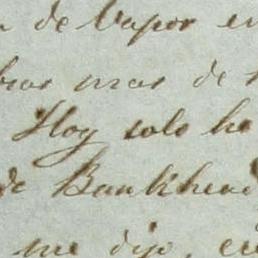 de Vapor en
mas de
Hoy solo he
de Bankhead
me dijo,